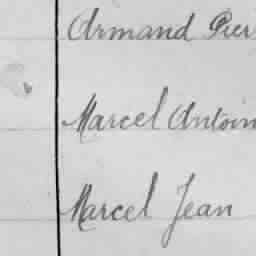 Armand Pier
Marcel Antoin
Marcel Jean